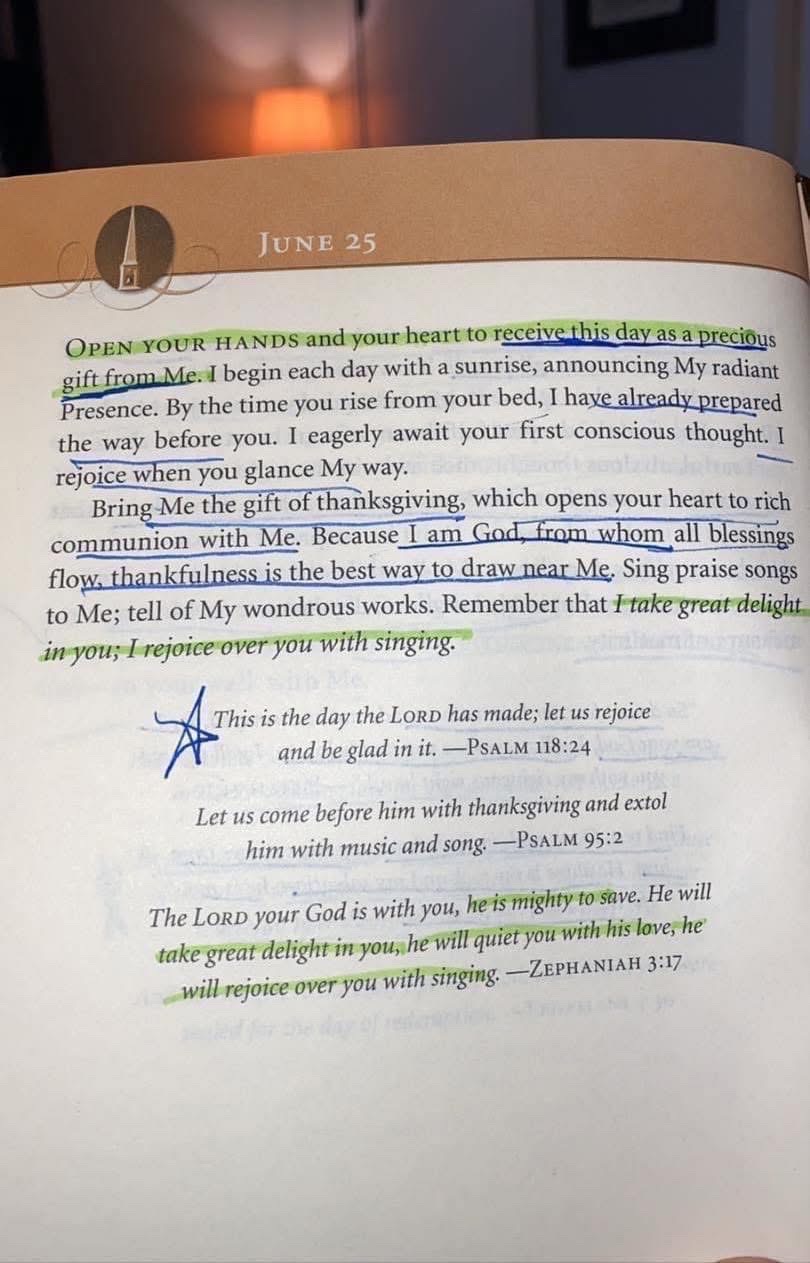 JUNE 25
OPEN YOUR HANDS and your heart to receive this day as a precious
gift from Me. I begin each day with a sunrise, announcing My radiant
Presence. By the time you rise from your bed, I have already prepared
the way before you. I eagerly await your first conscious thought. I
rejoice when you glance My way.
Bring Me the gift of thanksgiving, which opens your heart to rich
communion with Me. Because I am God, from whom all blessings
flow, thankfulness is the best way to draw near Me. Sing praise songs
to Me; tell of My wondrous works. Remember that I take great delight
in you; I rejoice over you with singing.
This is the day the LORD has made; let us rejoice
and be glad in it. —PSALM 118:24
Let us come before him with thanksgiving and extol
him with music and song. —PSALM 95:2
The LORD your God is with you, he is mighty to save. He will
take great delight in you, he will quiet you with his love, he
will rejoice over you with singing. —ZEPHANIAH 3:17